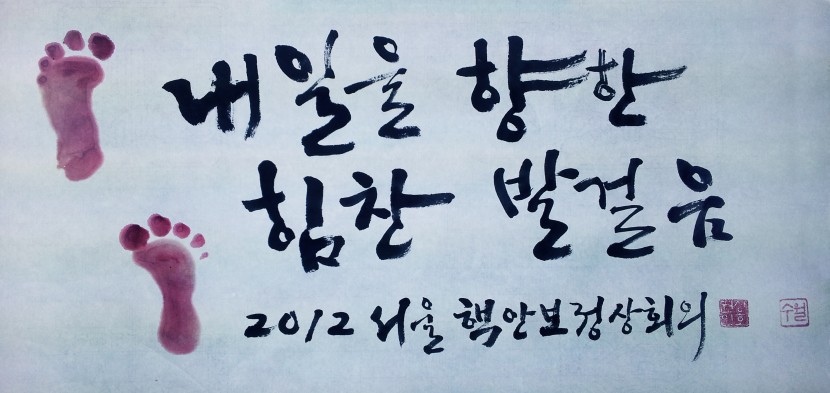 내일을 향한
힘찬 발걸음
2012 서울 핵안보정상회의